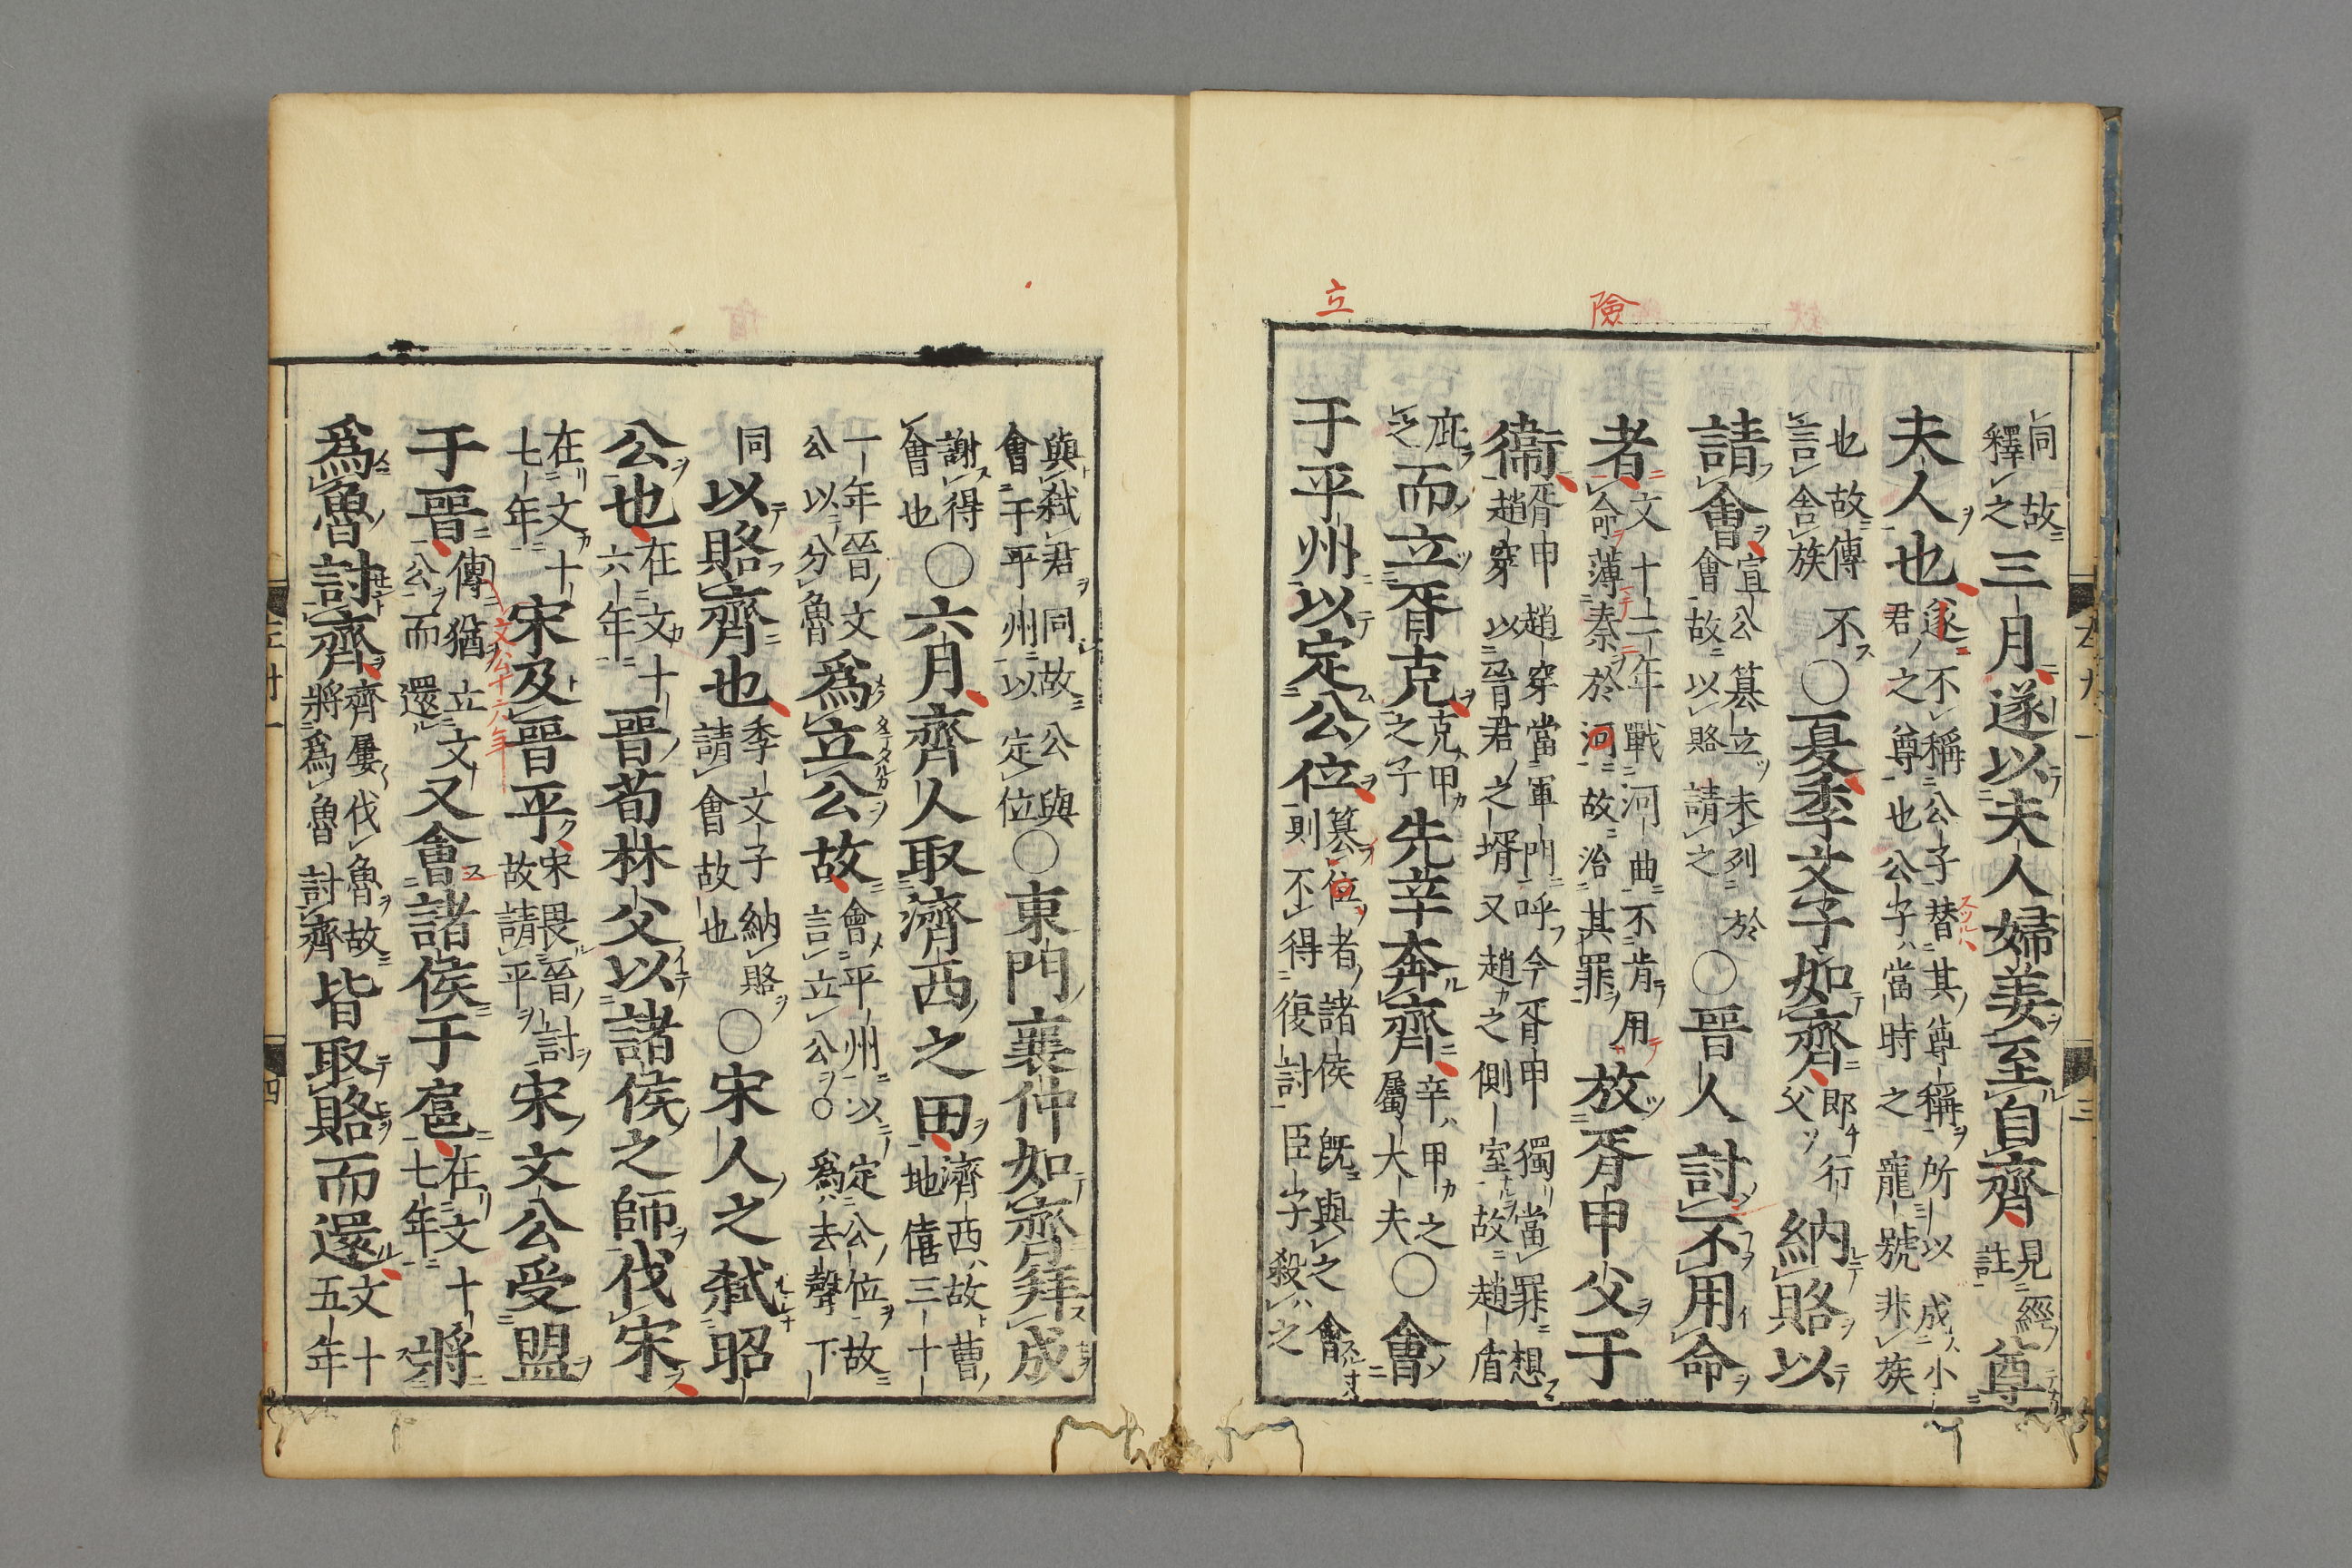 立
險
同故釋之三月遂以夫人婦姜至自齊見經註尊
夫人也遂不稱公子替其尊稱所以成小君之尊也公子當時之寵號非族
也故傳不言舍族○夏季文子如齊即行父納賂以
請會宣公篡立未列於會故以賂請之○晉人討不用命
者文十二年戰河曲不肯用命薄秦於河故治其罪放胥申父于
衞胥申趙穿當軍門呼今胥申獨當罪想趙穿以晉君之壻又趙之側室故趙盾
庇之而立胥克克甲之子先辛奔齊辛甲之屬大夫○會
于平州以定公位篡位者諸侯既與之會則不得復討臣子殺之
與弑君同故公與會于平州以定位○東門襄仲如齊拜成
謝得會也○六月齊人取濟西之田濟西故曹地僖三十
一年晉文公以分魯爲立公故會平州以定公位故言立公○爲去聲下
同以賂齊也季文子納賂請會故也○宋人之弑昭
公也在文十六年晉荀林父以諸侯之師伐宋
在文十七年宋及晉平宋畏晉討故請平宋文公受盟
于晉傳猶立文公而還又會諸侯于扈在文十七年將
文公十六年
爲魯討齊齊屢伐魯故將爲魯討齊皆取賂而還文十五年